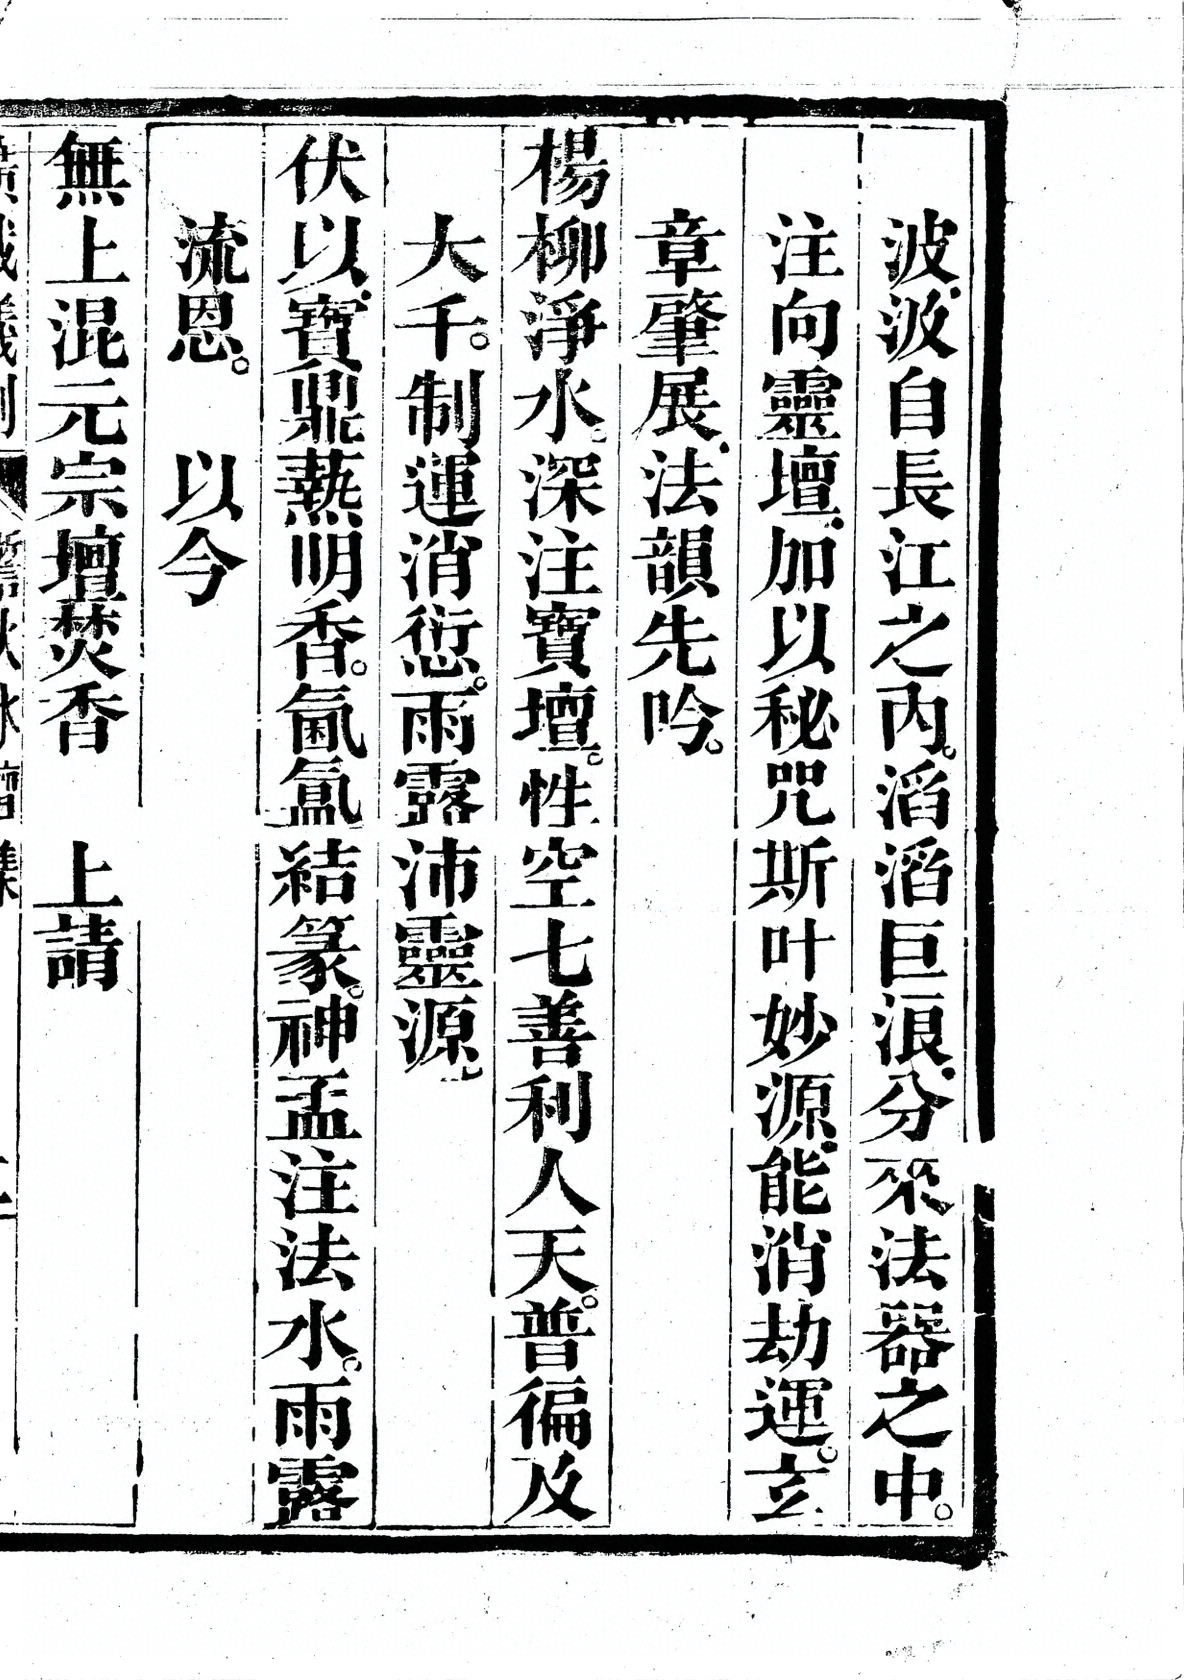 波波自長江之內。滔滔巨浪。分來法器之中。
注向靈壇。加以秘咒斯叶妙源。能消劫運。玄
章肇展。法韻先吟。
楊柳淨水。深注寶壇。性空七善利人天。普徧及
大千。制運消愆。雨露沛靈源。
伏以。寶鼎爇明香。氤氳結篆。神盂注法水。雨露
流恩。 以今
無上混元宗壇焚香 上請